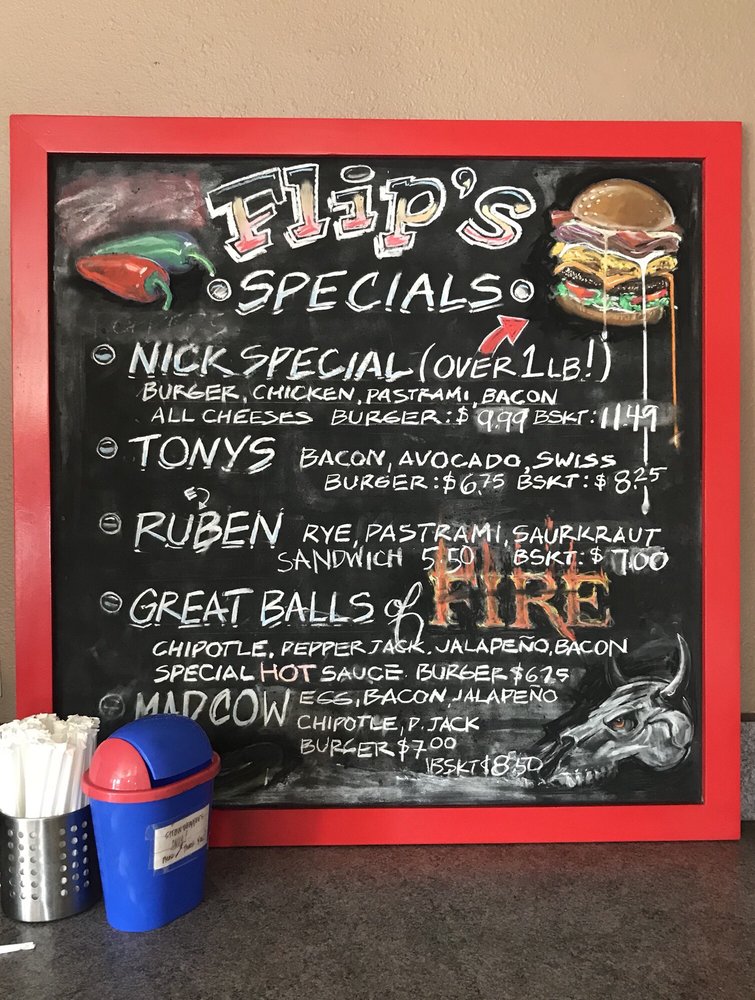 Flip's
SPECIALS
NICK SPECIAL (OVER 1 LB!)
BURGER, CHICKEN, PASTRAMI, BACON
ALL CHEESES BURGER: $ 9.99 BSKT: 11.49
TONYS BACON, AVOCADO, SWISS
BURGER: $6.75 BSKT: $8.25
RUBEN RYE, PASTRAMI, SAURKRAUT
SANDWICH 5.50 BSKT: $ 7.00
GREAT BALLS of FIRE
CHIPOTLE, PEPPER JACK, JALAPEÑO, BACON
SPECIAL HOT SAUCE BURGER $6.75
MAD COW EGG, BACON, JALAPEÑO
CHIPOTLE, P. JACK
BURGER $7.00
BSKT $8.50